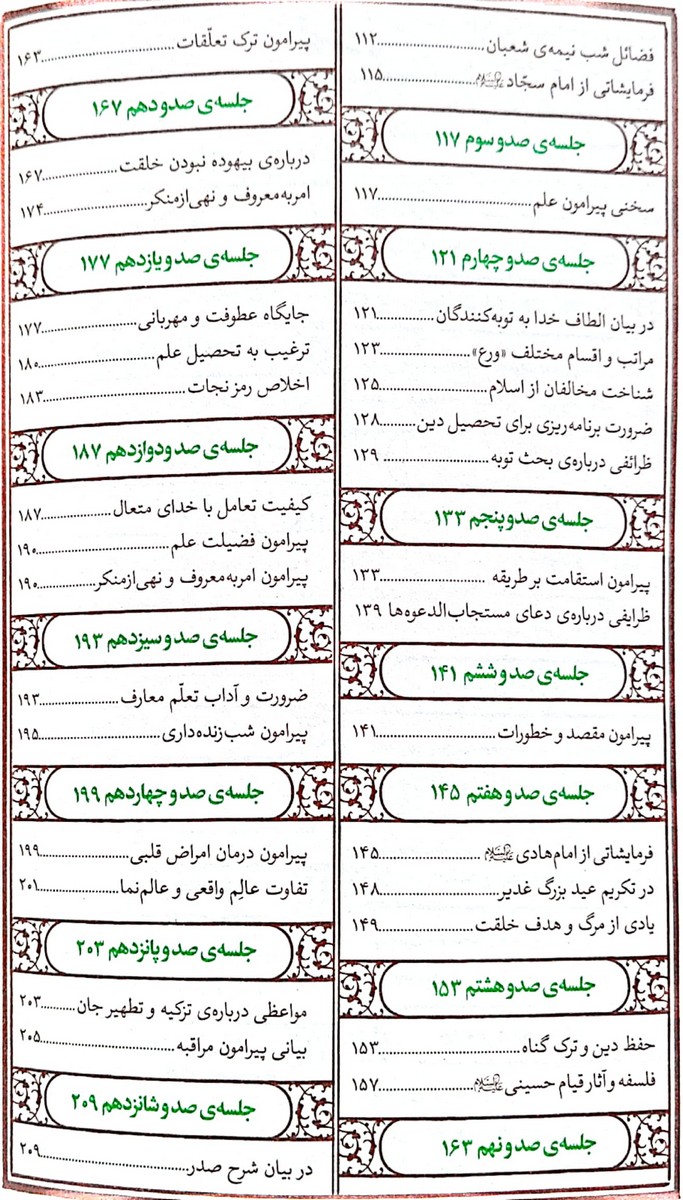 فضائل شب نیمه‌ی شعبان..................۱۱۲
فرمایشاتی از امام سجّاد علیه‌السلام..................۱۱۵
جلسه‌ی صد و سوم ۱۱۷
سخنی پیرامون علم..................۱۱۷
جلسه‌ی صد و چهارم ۱۲۱
در بیان الطاف خدا به توبه‌کنندگان..................۱۲۱
مراتب و اقسام مختلف «ورع»..................۱۲۳
شناخت مخالفان از اسلام..................۱۲۵
ضرورت برنامه‌ریزی برای تحصیل دین..................۱۲۸
ظرائفی درباره‌ی بحث توبه..................۱۲۹
جلسه‌ی صد و پنجم ۱۳۳
پیرامون استقامت بر طریقه..................۱۳۳
ظرایفی درباره‌ی دعای مستجاب‌الدعوه‌ها ۱۳۹
جلسه‌ی صد و ششم ۱۴۱
پیرامون مقصد و خطورات..................۱۴۱
جلسه‌ی صد و هفتم ۱۴۵
فرمایشاتی از امام هادی علیه‌السلام..................۱۴۵
در تکریم عید بزرگ غدیر..................۱۴۸
یادی از مرگ و هدف خلقت..................۱۴۹
جلسه‌ی صد و هشتم ۱۵۳
حفظ دین و ترک گناه..................۱۵۳
فلسفه و آثار قیام حسینی علیه‌السلام..................۱۵۷
جلسه‌ی صد و نهم ۱۶۳
پیرامون ترک تعلّقات..................۱۶۳
جلسه‌ی صد و دهم ۱۶۷
درباره‌ی بیهوده نبودن خلقت..................۱۶۷
امربه‌معروف و نهی‌ازمنکر..................۱۷۴
جلسه‌ی صد و یازدهم ۱۷۷
جایگاه عطوفت و مهربانی..................۱۷۷
ترغیب به تحصیل علم..................۱۸۰
اخلاص رمز نجات..................۱۸۳
جلسه‌ی صد و دوازدهم ۱۸۷
کیفیت تعامل با خدای متعال..................۱۸۷
پیرامون فضیلت علم..................۱۹۰
پیرامون امربه‌معروف و نهی‌ازمنکر..................۱۹۰
جلسه‌ی صد و سیزدهم ۱۹۳
ضرورت و آداب تعلّم معارف..................۱۹۳
پیرامون شب‌زنده‌داری..................۱۹۵
جلسه‌ی صد و چهاردهم ۱۹۹
پیرامون درمان امراض قلبی..................۱۹۹
تفاوت عالِم واقعی و عالم‌نما..................۲۰۱
جلسه‌ی صد و پانزدهم ۲۰۳
مواعظی درباره‌ی تزکیه و تطهیر جان..................۲۰۳
بیانی پیرامون مراقبه..................۲۰۵
جلسه‌ی صد و شانزدهم ۲۰۹
در بیان شرح صدر..................۲۰۹